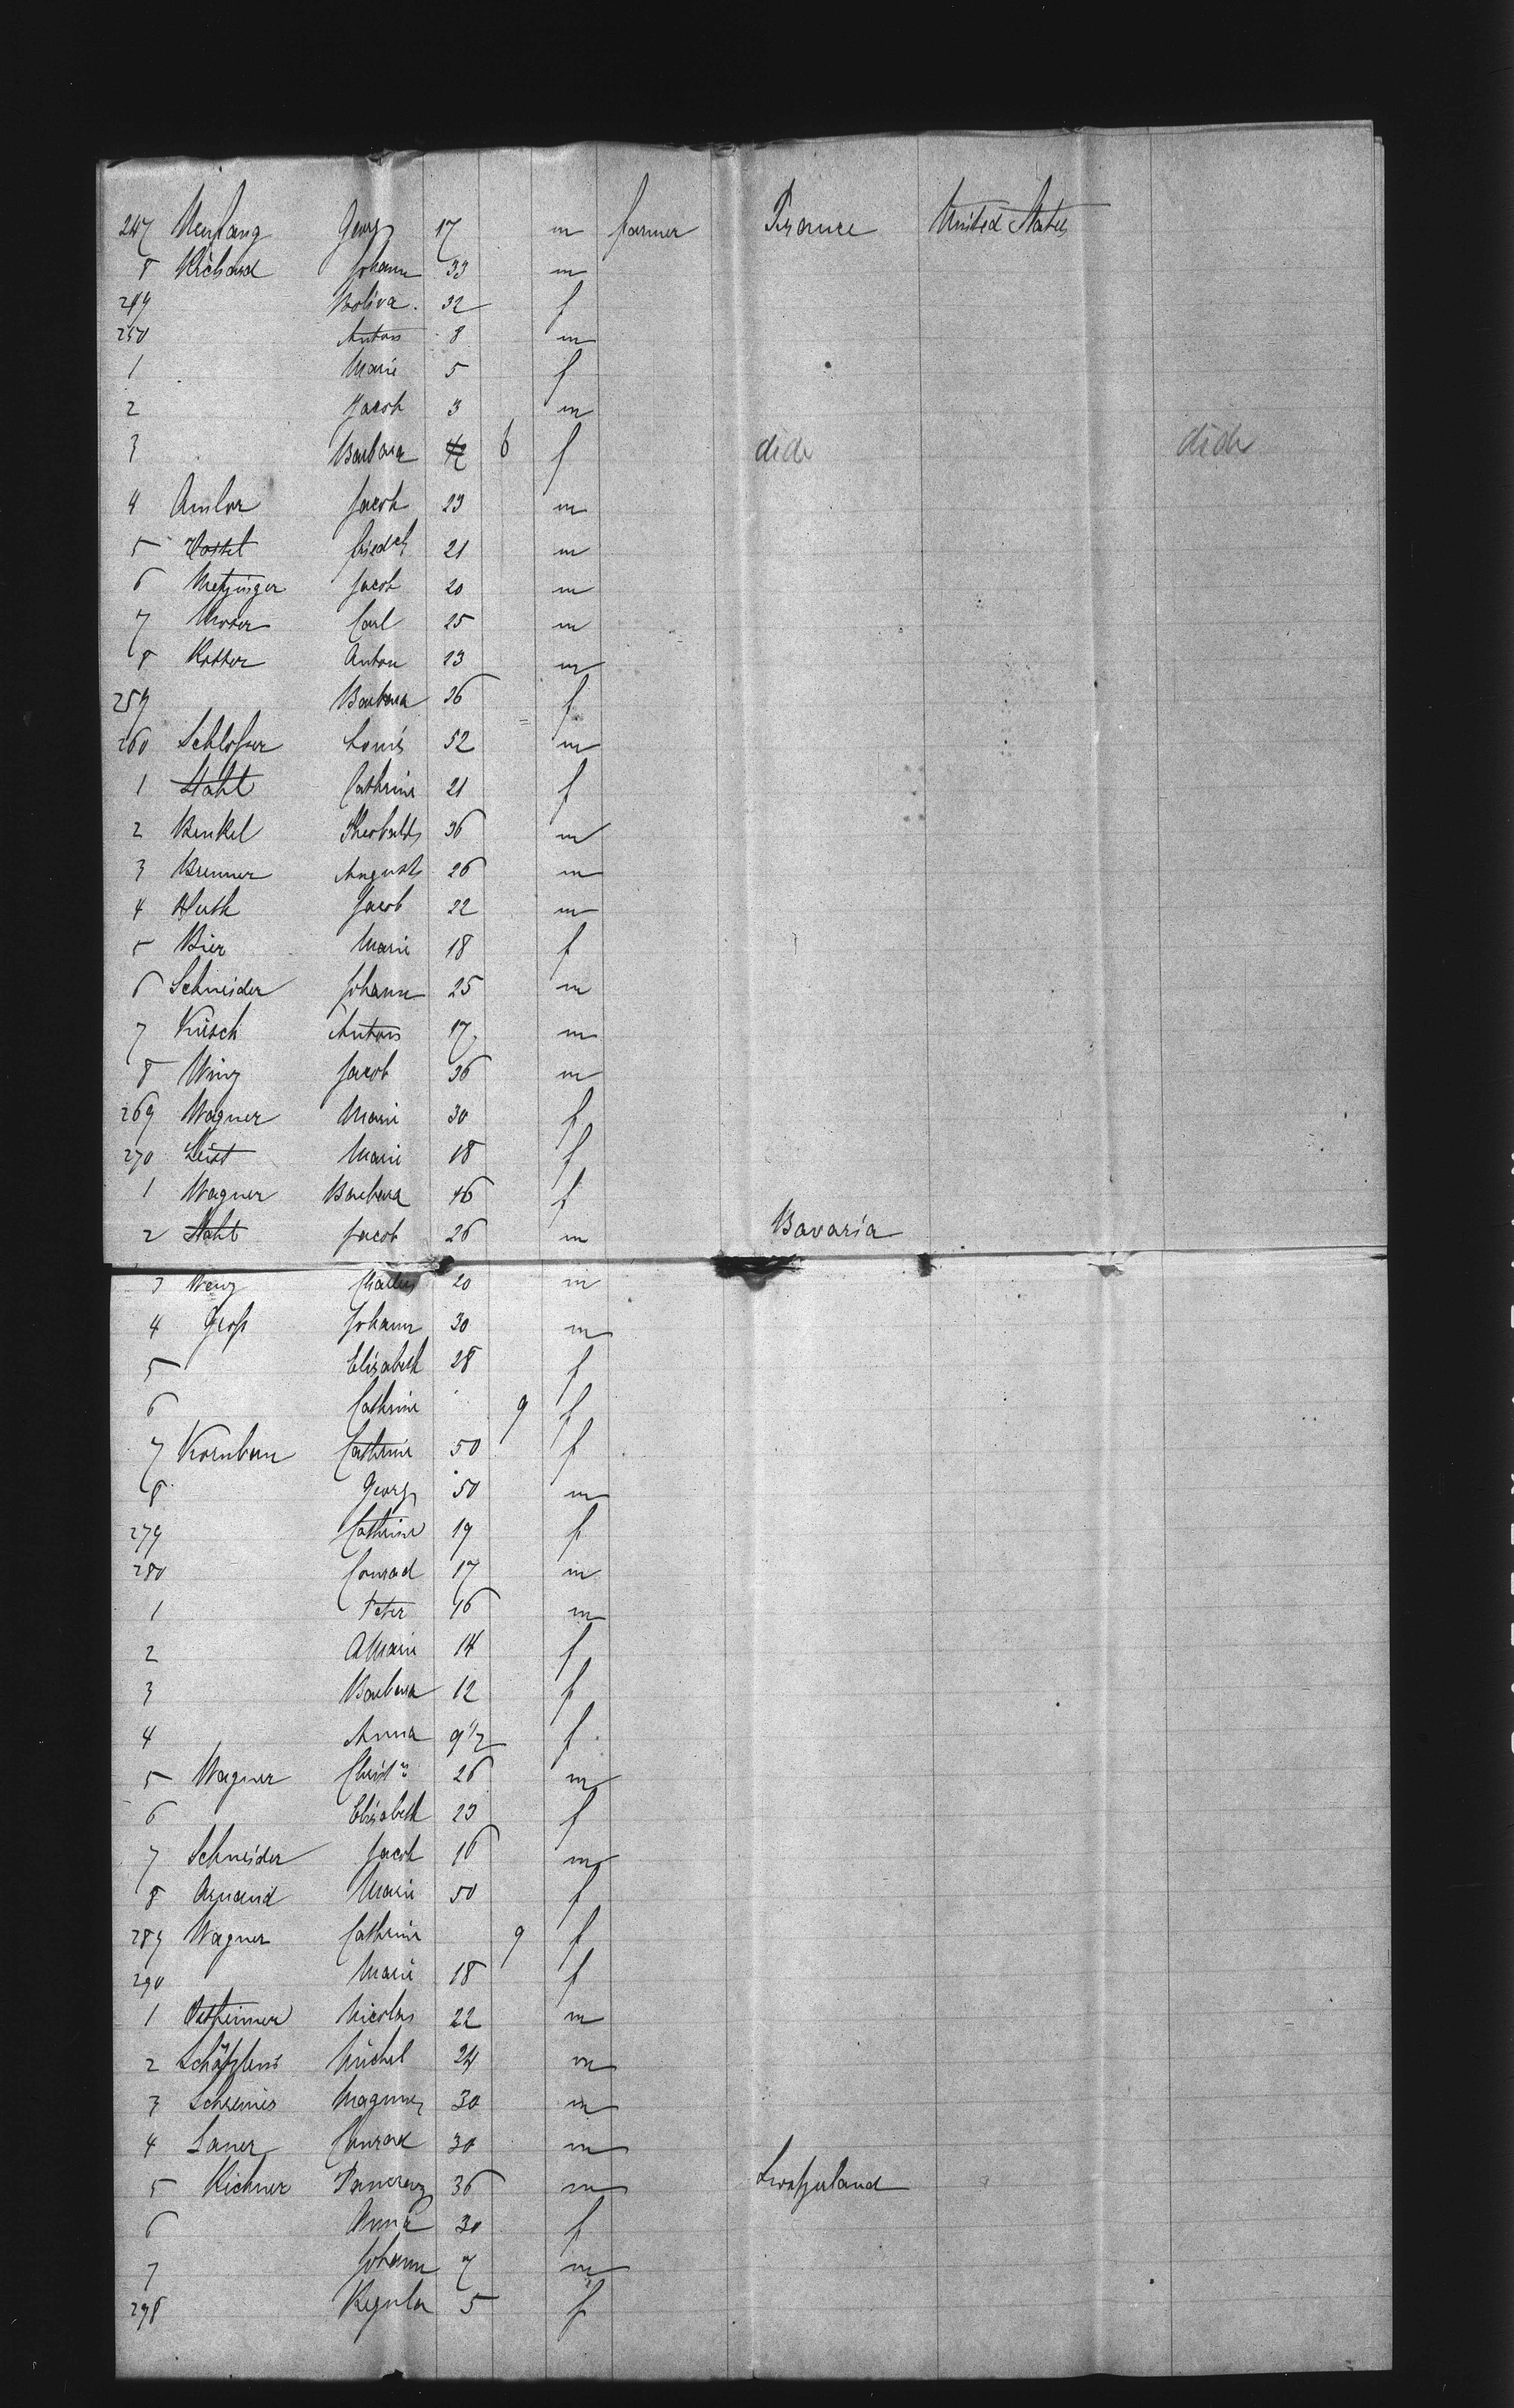 247 Neufang Georg 17 m farmer France United States
8 Richard Johann 33 m
249 32 f
250 Anton 8 m
1 Marie 5 f
2 Jacob 3 m
3 Barbara 6 f died died
4 Amlor Jacob 23 m
5 Vostel friedch 21 m
6 Metzinger Jacob 20 m
7 Moser Carl 25 m
8 Kotter Anton 23 m
259 Barbara 26 f
260 Schlosser Louis 52 m
1 Stahl Cathrine 21 f
2 Kunkel Theobald 36 m
3 Brenner August 26 m
4 Huth Jacob 22 m
5 Bier Marie 18 f
6 Schneider Johann 25 m
7 Kirsch Anton 17 m
8 Jacob 36 m
269 Wagner Marie 30 f
270 Leist Marie 18 f
1 Wagner Barbara 46 f
2 Stahl Jacob 26 m Bavaria
3 Wenz 20 m
4 Groß Johann 30 m
5 Elisabeth 28 f
6 Cathrine 9 f
7 Kornbau Cathrine 50 f
8 Georg 50 m
279 Cathrine 19 f
280 Conrad 17 m
1 Peter 16 m
2 AMarie 14 f
3 Barbara 12 f
4 Anna 9 1/2 f
5 Wagner Christn 26 m
6 Elisabeth 23 f
7 Schneider Jacob 16 m
8 Armand Marie 50 f
289 Wagner Cathrine 9 f
290 Marie 18 f
1 Ostheimer Nicolas 22 m
2 Michel 24 m
3 Magnus 30 m
4 Lauer Conrad 30 m
5 Kichner Pancraz 36 m Switzerland
6 Anna 30 f
7 Johann 7 m
298 Regula 5 f